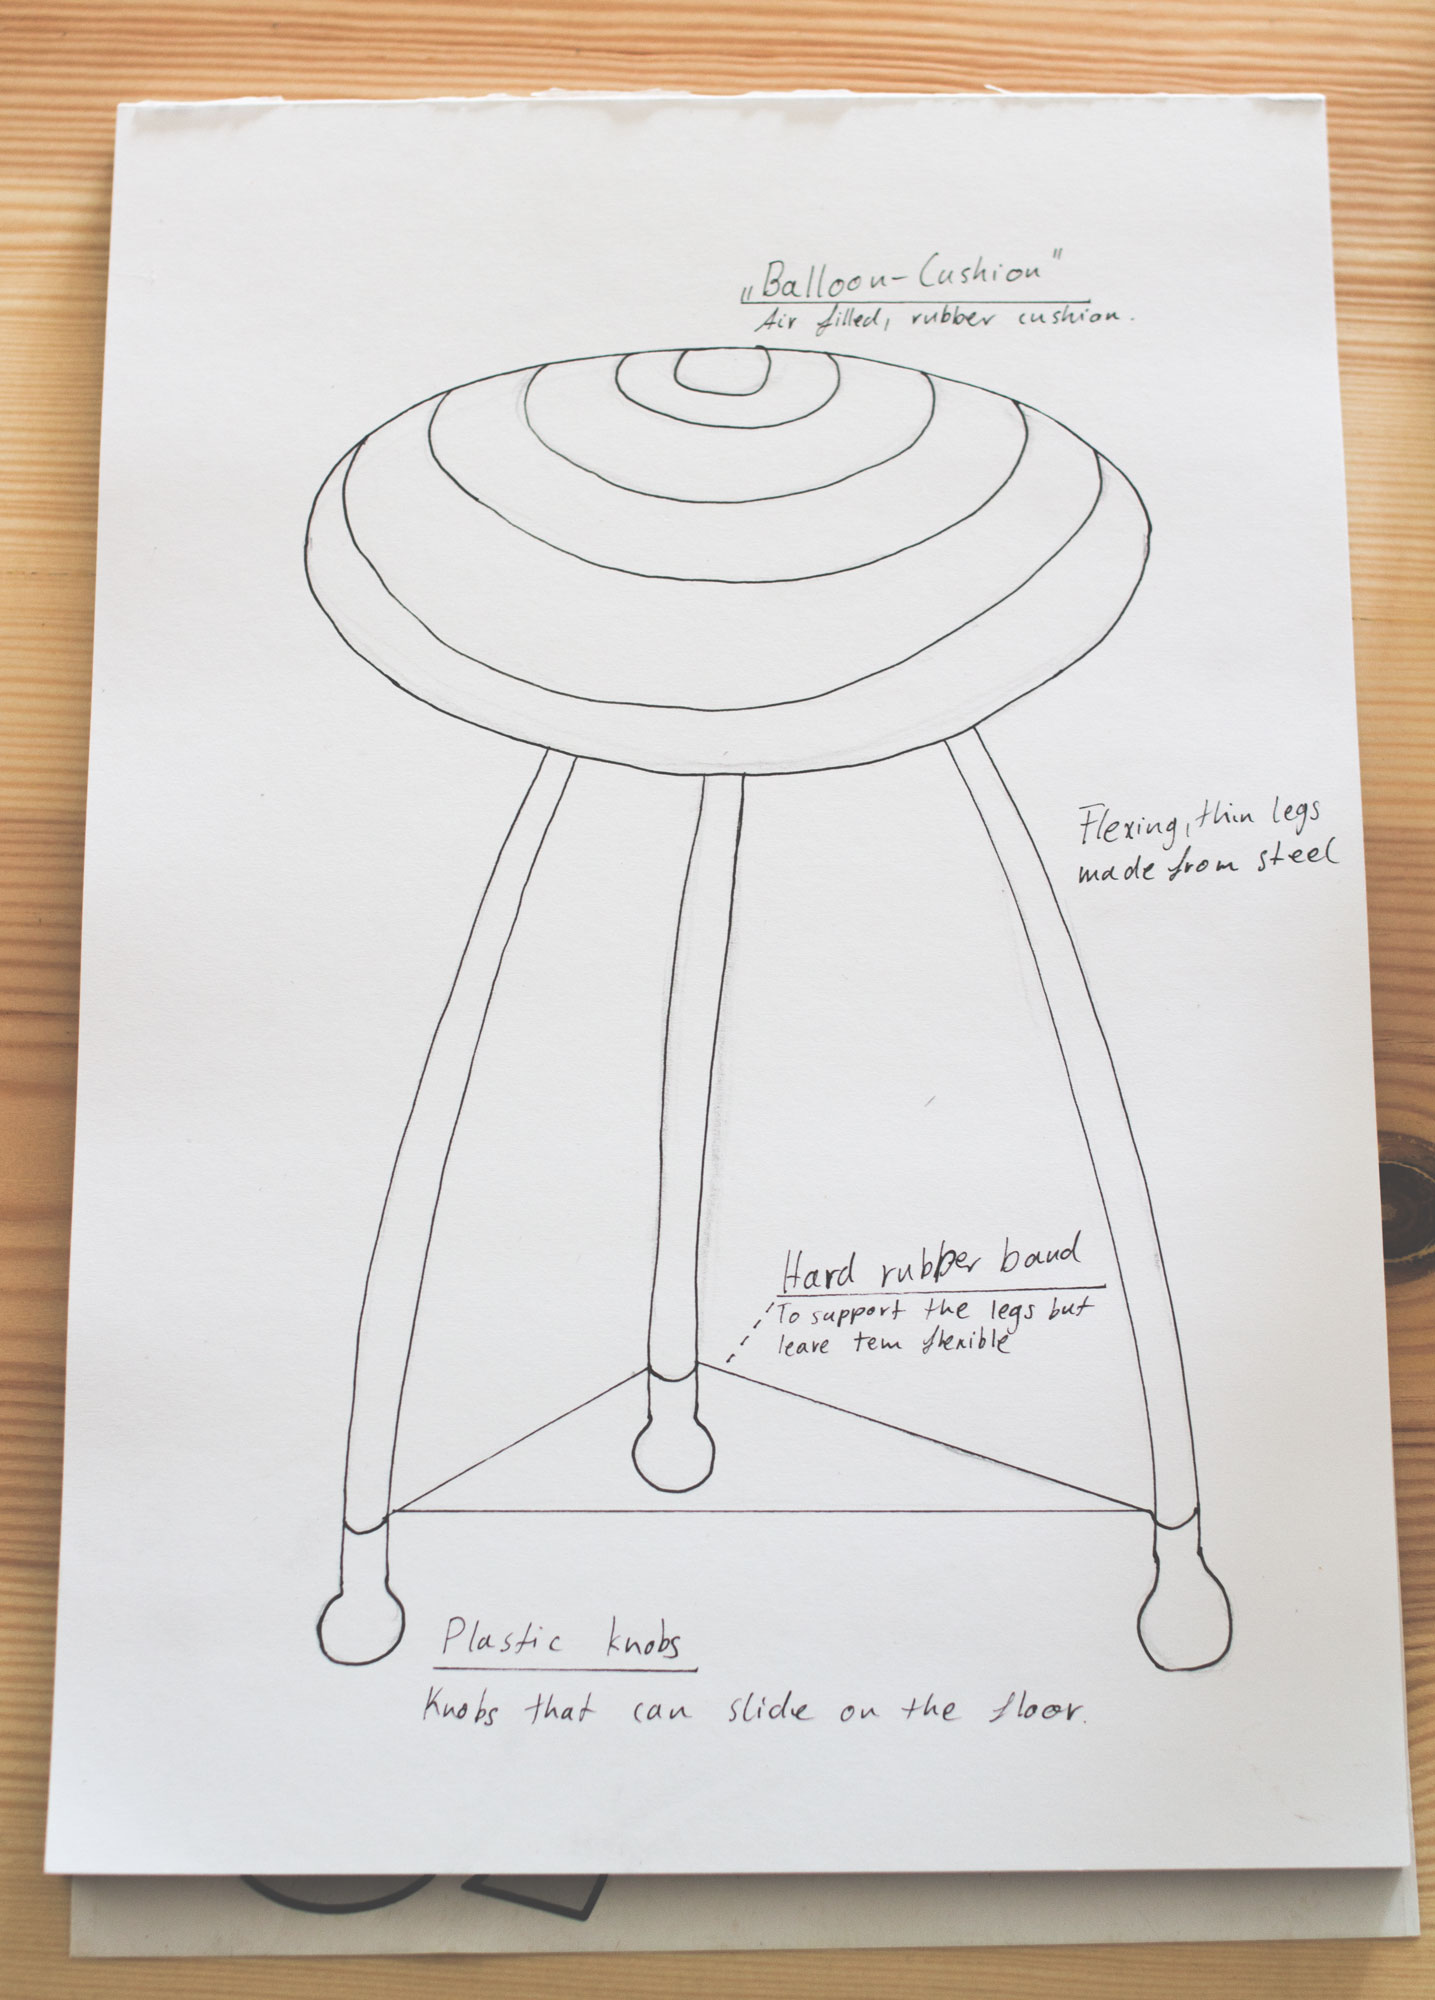 „Balloon-Cushion"
Air filled, rubber cushion.
Flexing, thin legs
made from steel
Hard rubber band
To support the legs but
leave tem flexible
Plastic knobs
Knobs that can slide on the floor.